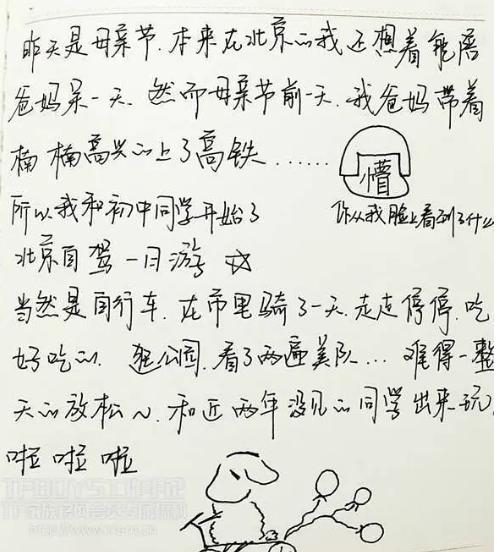 昨天是母亲节.本来在北京的我还想着能陪
爸妈呆一天.然而母亲节前一天.我爸妈带着
楠楠高兴的上了高铁......
懵
所以我和初中同学开始了
你从我脸上看到了什么
北京自驾一日游 ☆
当然是自行车.在市里骑了一天.走走停停.吃
好吃的.逛公园.看了两遍美队...难得一整
天的放松~.和近两年没见的同学出来玩.
啦啦啦